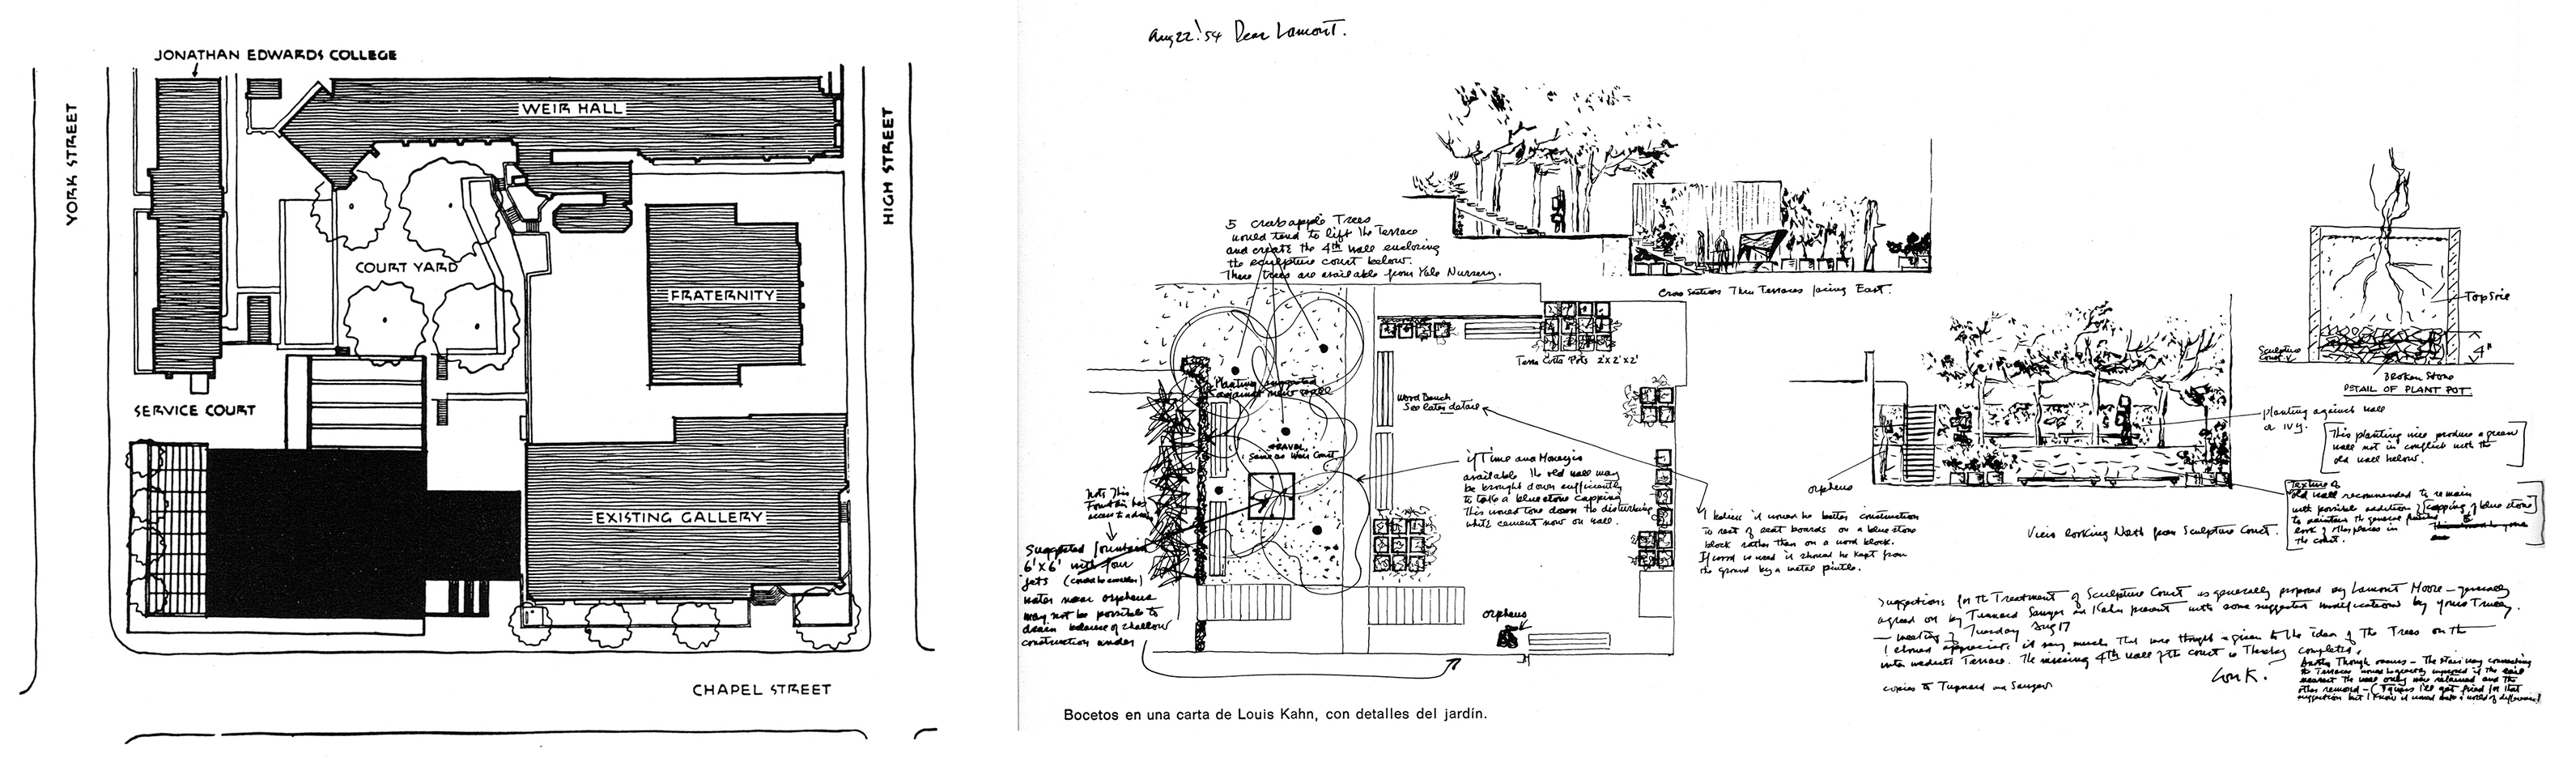 JONATHAN EDWARDS COLLEGE
WEIR HALL
YORK STREET
HIGH STREET
COURT YARD
FRATERNITY
SERVICE COURT
EXISTING GALLERY
CHAPEL STREET
Aug 22 '54 Dear Lamont.
5 crabapple Trees
would tend to lift the Terrace
and create the 4th wall enclosing
the sculpture court below.
These trees are available from Yale Nursery.
Cross Sections Thru Terraces facing East.
Terra Cotta Pots 2'x2'x2'
Planting suggested
against new wall
Wood Bench
See later detail
GRAVEL
same as Weir Court
if Time and Money is
available the old wall may
be brought down sufficiently
to take a bluestone capping
This would tone down the disturbing
white cement now on wall.
Note This
Fountain has
access to a drain
Suggested fountain
6'x6' with four
jets
water near orpheus
may not be possible to
drain because of shallow
construction under
I believe it would be better construction
to rest of seat boards on a blue stone
block rather than on a wood block.
If wood is used it should be kept from
the ground by a metal pintle.
orpheus
Bocetos en una carta de Louis Kahn, con detalles del jardín.
Topsoil
Sculpture
Court
4"
Broken Stone
DETAIL OF PLANT POT
planting against wall
or ivy.
This planting will produce a green
wall not in conflict with the
old wall below.
orpheus
Texture of
old wall recommended to remain
with possible addition of capping of blue stone
to maintain the general
look of other places in
the court.
View looking North from Sculpture Court.
Suggestions for the Treatment of Sculpture Court as generally proposed by Lamont Moore – generally
agreed on by Tunnard Sanger and Kahn present with some suggested modifications by yours Truly.
– meeting of Tuesday Aug 17
I should appreciate it very much that more thought is given to the idea of The Trees on the
intermediate Terrace. The missing 4th wall of the court is Thereby completed.
Another Thought occurs – The stairway connecting
the Terraces would be greatly improved if the rail
nearest the wall only were retained and the
other removed – (I guess I'll get fired for that
suggestion but I know it would make a world of difference)
Lou K.
copies to Tunnard and Sanger